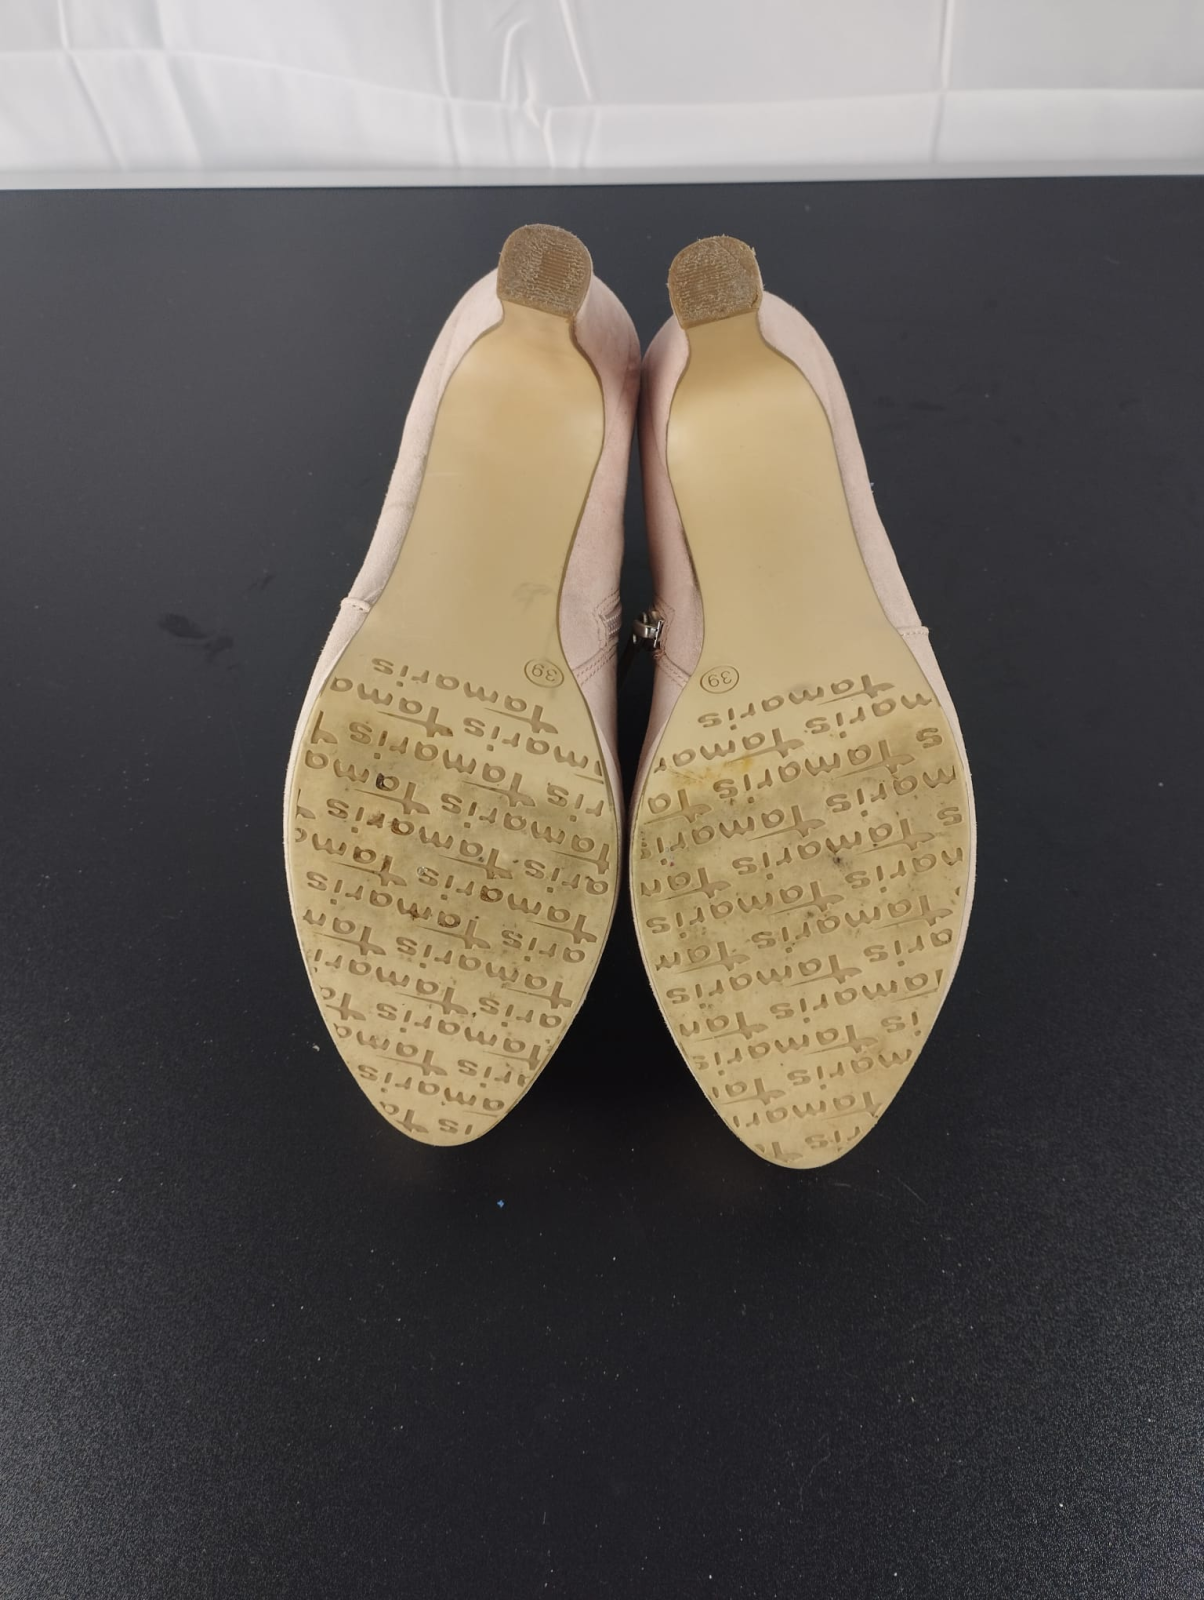 39
39
Tamaris
Tamaris
Tamaris
Tamaris
Tamaris
Tamaris
Tamaris
Tamaris
Tamaris
Tamaris
Tamaris
Tamaris